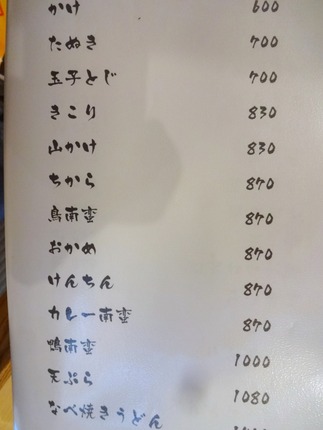 かけ 600
たぬき 700
玉子とじ 700
きこり 830
山かけ 830
ちから 870
鳥南蛮 870
おかめ 870
けんちん 870
カレー南蛮 870
鴨南蛮 1000
天ぷら 1080
なべ焼きうどん